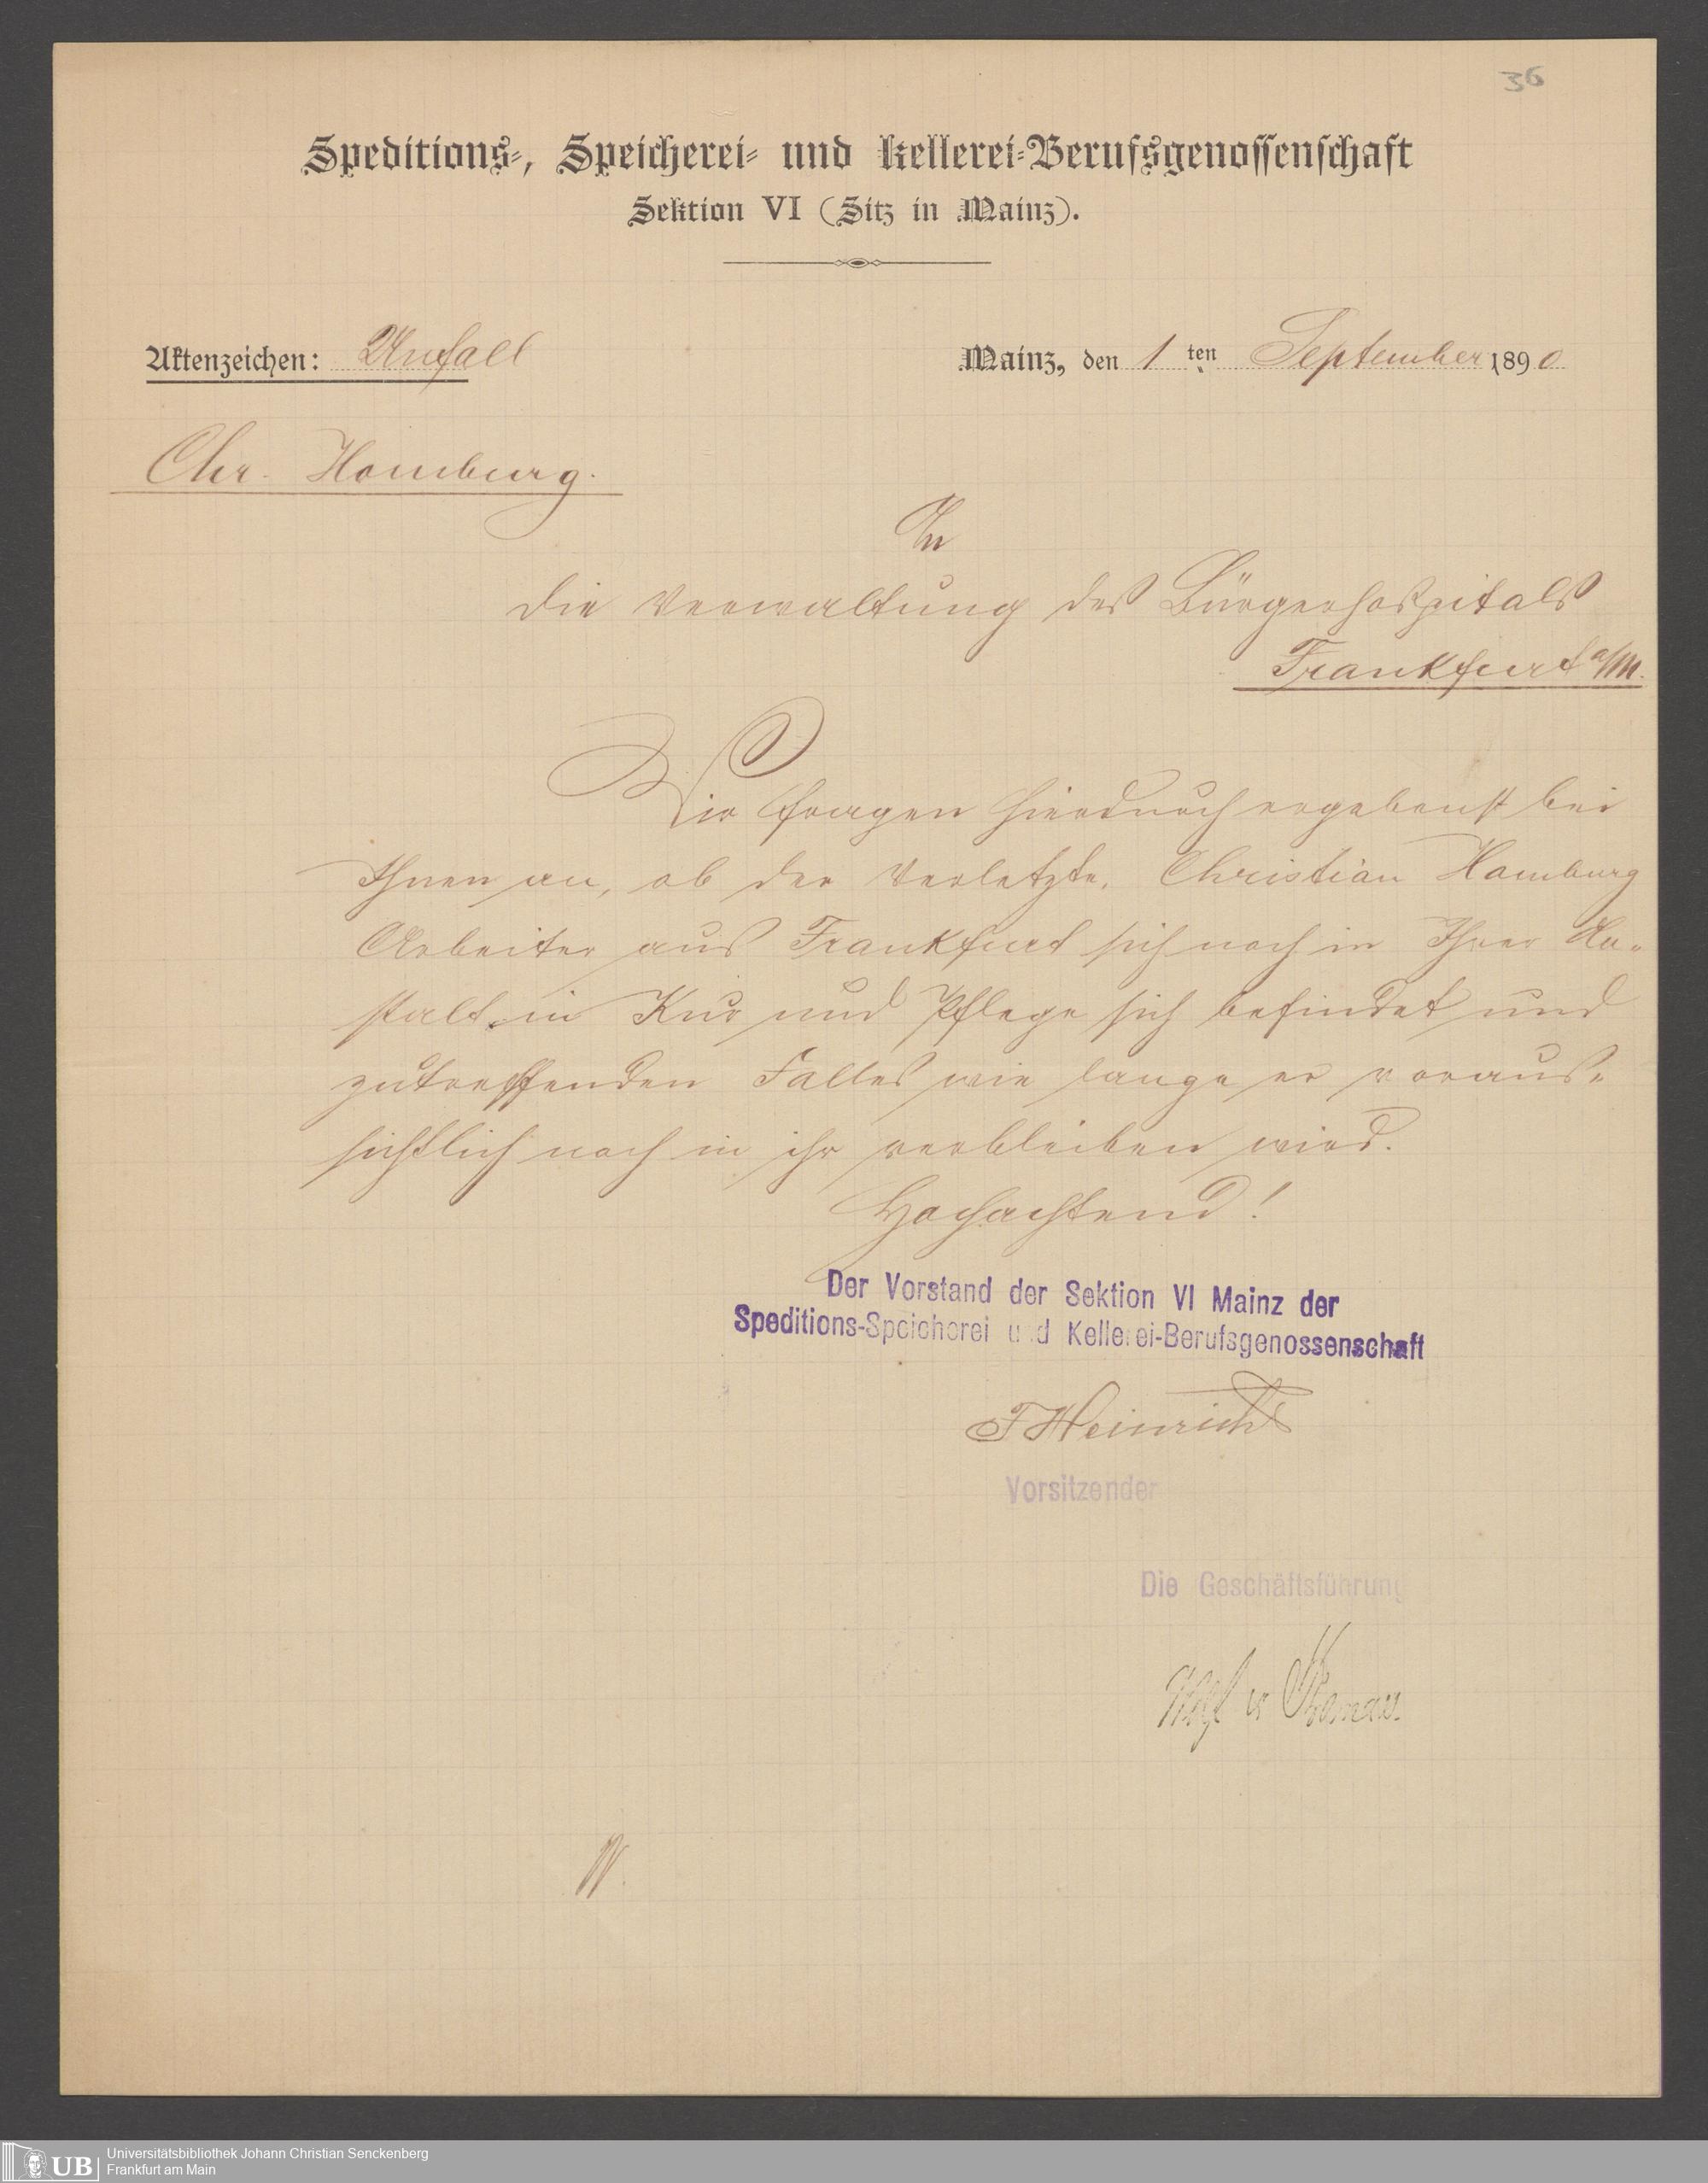 36
Speditions-, Speicherei- und Kellerei-Berufsgenossenschaft
Sektion VI (Sitz in Mainz).
Aktenzeichen: Unfall
Mainz, den 1 ten September 1890
Chr. Homburg.
An
die Verwaltung des Bürgerhospitals
Frankfurt a/M.
Wir fragen hierdurch ergebenst bei
Ihnen an, ob der Verletzte, Christian Homburg
Arbeiter aus Frankfurt sich noch in Ihrer An-
stalt in Kur und Pflege sich befindet und
zutreffenden Falles wie lange er voraus-
sichtlich noch in ihr verbleiben wird.
Hochachtend!
Der Vorstand der Sektion VI Mainz der
Speditions-Speicherei und Kellerei-Berufsgenossenschaft
F Heinrichs
Vorsitzender
Die Geschäftsführung
W.
UB Universitätsbibliothek Johann Christian Senckenberg
Frankfurt am Main